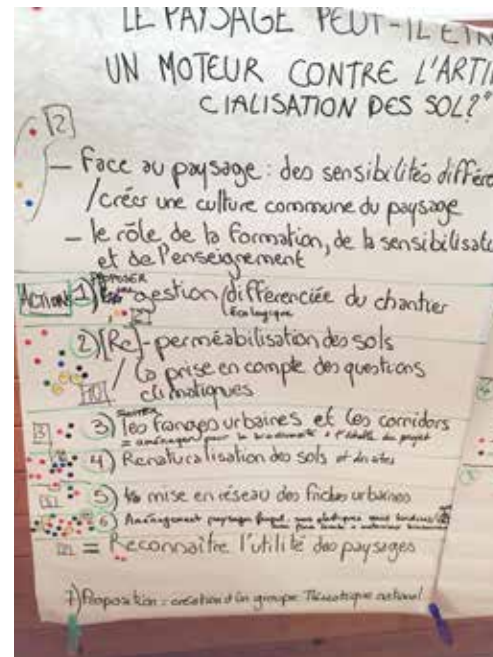 LE PAYSAGE PEUT-IL ETR
UN MOTEUR CONTRE L'ARTI
CIALISATION DES SOL?"
2
— Face au paysage : des sensibilités différe
/créer une culture commune du paysage
— le rôle de la formation, de la sensibilisat
et de l'enseignement
PROPOSER
ACTIONS 1) gestion différenciée du chantier
Écologique
2) [Re]-perméabilisation des sols
/ la prise en compte des questions
10 climatiques
3 3) les franges urbaines et les corridors
= aménager pour la biodiversité à l'échelle du projet
4) Renaturalisation des sols et des sites
5) mise en réseau des friches urbaines
6) Aménagement paysager frugal, sans plastiques
= Reconnaître l'utilité des paysages
7) Proposition : création d'un groupe Thématique national